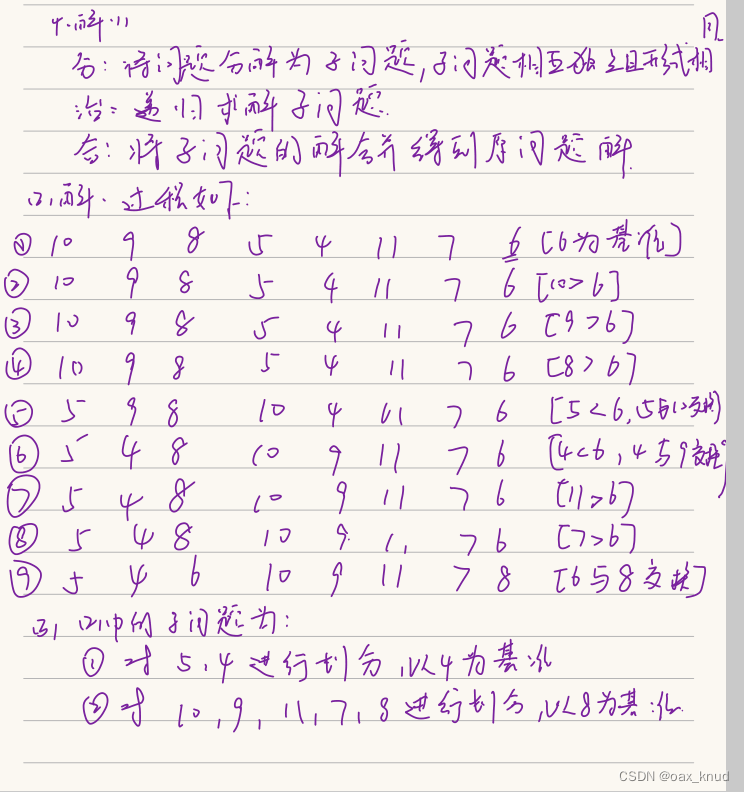 4.解.(1)
分:将问题分解为子问题,子问题相互独立且形式相同
治:递归求解子问题.
合:将子问题的解合并得到原问题解.
(2).解.过程如下:
① 10 9 8 5 4 11 7 6 [6为基准]
② 10 9 8 5 4 11 7 6 [10>6]
③ 10 9 8 5 4 11 7 6 [9>6]
④ 10 9 8 5 4 11 7 6 [8>6]
⑤ 5 9 8 10 4 11 7 6 [5<6,5与10交换]
⑥ 5 4 8 10 9 11 7 6 [4<6,4与9交换]
⑦ 5 4 8 10 9 11 7 6 [11>6]
⑧ 5 4 8 10 9 11 7 6 [7>6]
⑨ 5 4 6 10 9 11 7 8 [6与8交换]
(3) (2)中的子问题为:
① 对 5,4 进行划分,以4为基准
② 对 10,9,11,7,8 进行划分,以8为基准.
CSDN @oax_knud